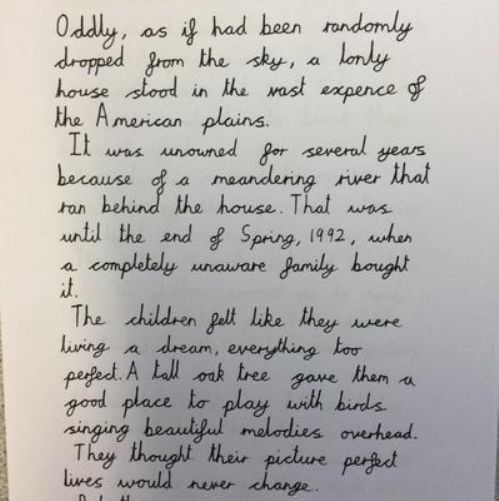 Oddly, as if had been randomly
dropped from the sky, a lonly
house stood in the vast expence of
the American plains.
It was unowned for several years
because of a meandering river that
ran behind the house. That was
until the end of Spring, 1992, when
a completely unaware family bought
it.
The children felt like they were
living a dream, everything too
perfect. A tall oak tree gave them a
good place to play with birds
singing beautiful melodies overhead.
They thought their picture perfect
lives would never change.